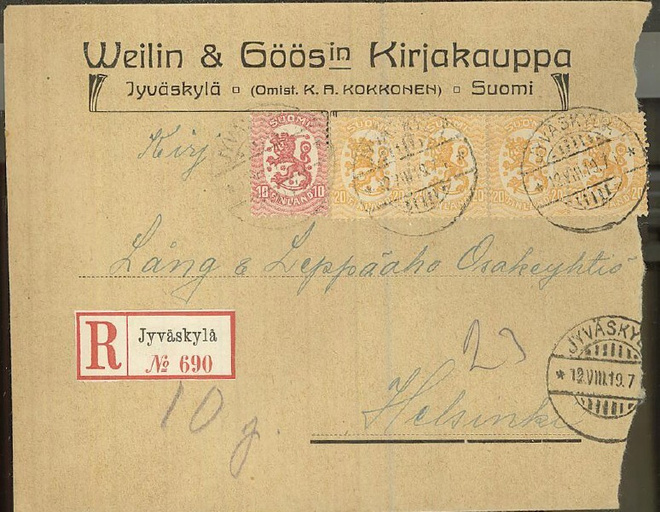 Weilin & Göösin Kirjakauppa
Jyväskylä ▫ (Omist. K. A. KOKKONEN) ▫ Suomi
Kirj
SUOMI
10 10
FINLAND
20 20
FINLAND
JYVÄSKYLÄ
12.VIII.19.7
Lång & Leppäaho Osakeyhtiö
R Jyväskylä
№ 690
JYVÄSKYL
* 12.VIII.19.7
23
10 g.
Helsinki